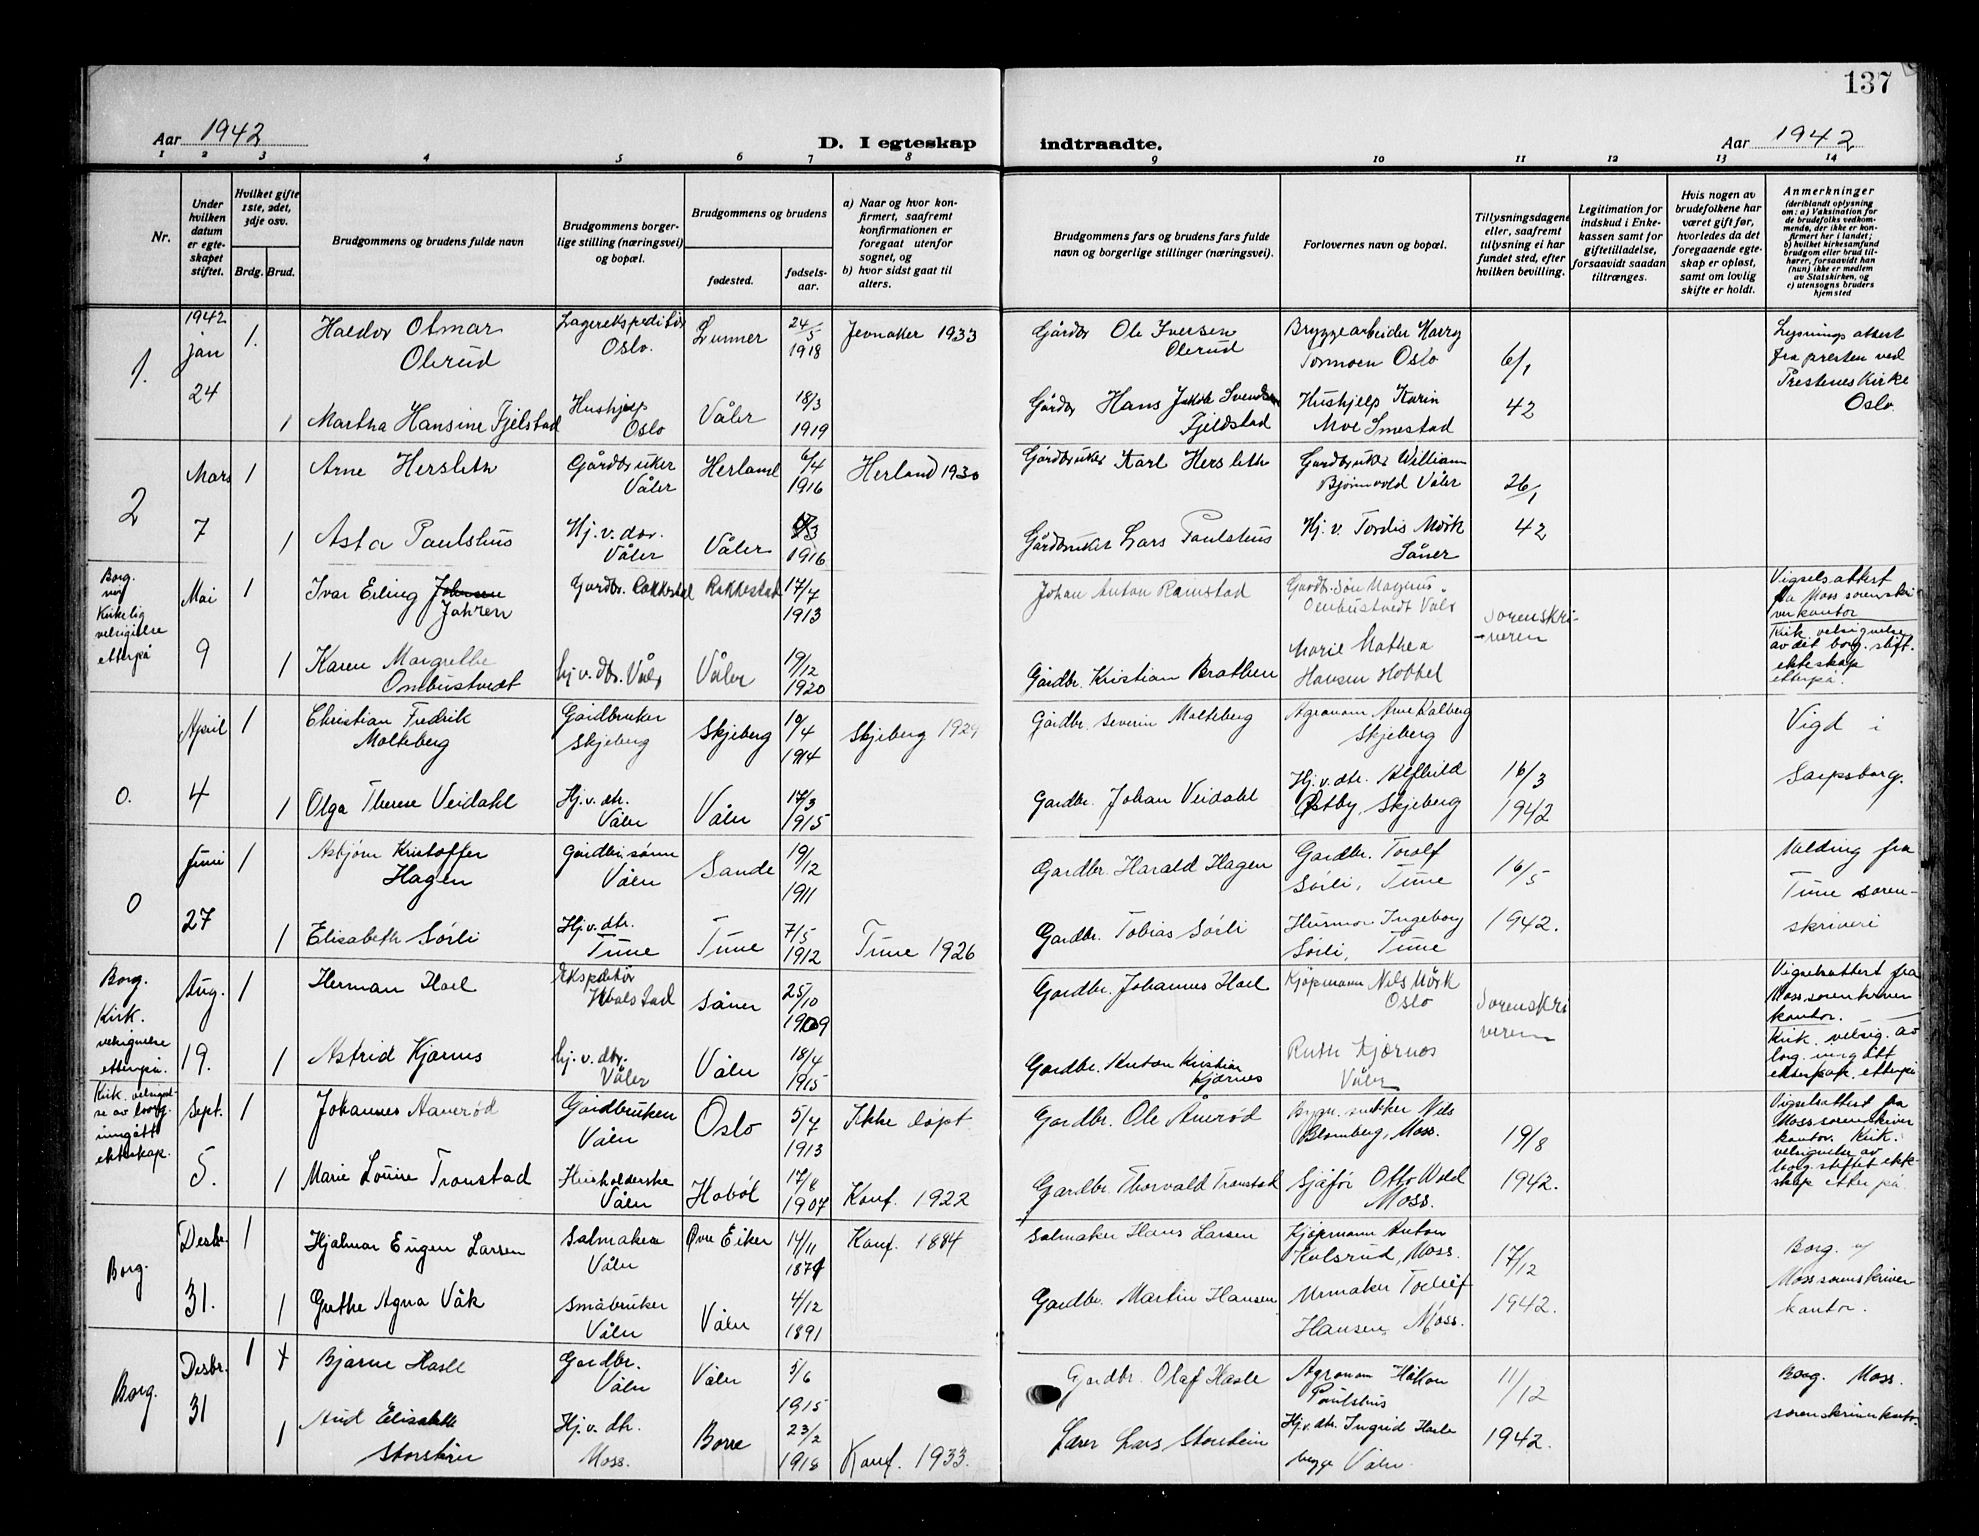 137
Aar 1942
D. I egteskap
indtraadte.
Aar 1942
1 2 3 4 5 6 7 8 9 10 11 12 13 14
Nr.
Under
hvilken
datum
er egte-
skapet
stiftet.
Hvilket gifte
1ste, 2det,
3dje osv.
Brdg. Brud.
Brudgommens og brudens fulde navn
Brudgommens borger-
lige stilling (næringsvei)
og bopæl.
Brudgommens og brudens
fødested.
fødsels-
aar.
a) Naar og hvor kon-
firmert, saafremt
konfirmationen er
foregaat utenfor
sognet, og
b) hvor sidst gaat til
alters.
Brudgommens fars og brudens fars fulde
navn og borgerlige stillinger (næringsvei).
Forlovernes navn og bopæl.
Tillysningsdagene
eller, saafremt
tillysning ei har
fundet sted, efter
hvilken bevilling.
Legitimation for
indskud i Enke-
kassen samt for
giftetilladelse,
forsaavidt saadan
tiltrænges.
Hvis nogen av
brudefolkene har
været gift før,
hvorledes da det
foregaaende egte-
skap er opløst,
samt om lovlig
skifte er holdt.
Anmerkninger
(deriblandt oplysning
om: a) Vaksination for
de brudefolks vedkom-
mende, der ikke er kon-
firmert her i landet;
b) hvilket kirkesamfund
brudgom eller brud til-
hører, forsaavidt han
(hun) ikke er medlem
av Statskirken, og
c) utensogns bruders
hjemsted
1.
1942
jan
24
1.
Haldor Otmar
Olerud
Lagerekspeditør
Oslo.
Lunner
24/5
1918
Jevnaker 1933
Gårdbr Ole Iversen
Olerud
Bryggearbeider Harry
Tormoen Oslo
6/1
42
Lysnings attest
fra presten ved
Prestenes Kirke
Oslo.
1
Martha Hansine Fjelstad
Hushjelp
Oslo
Våler
18/3
1919
Gårdbr Hans Jakob Svendsen
Fjeldstad
Hushjelp Karin
Moe Smestad
2
Mars
7
1
Arne Hersleth
Gårdbruker
Våler
Herland
6/4
1916
Herland 1930
Gårdbruker Karl Hersleth
Gardbruker William
Bjørnvold Våler
26/1
42
1
Asta Paulshus
Hj. v. dtr.
Våler
Våler
1916
Gårdbruker Lars Paulshus
Hj. v. Tordis Mørk
Såner
Borg.
Kirkelig
velsignelse
etterpå
Mai
9
1
Ivar Erling
Jahren
Gardbr. Rakkestad
Rakkestad
17/7
1913
Johan Anton Ramstad
Gardbr. Søn Magnus
Ombustvedt Våler
Sorenskri-
veren
Vigselsattest
fra Moss sorenskri
verkontor
Kirk. velsignelse
av det borg. stift.
ekteskap
etterpå.
1
Karen Margrethe
Ombustvedt
hj. v. dtr. Våler
Våler
19/12
1920
Gardbr. Kristian Brathen
Marie Mathea
Hansen Hobbel
0.
April
4
1
Christian Fredrik
Molteberg
Gårdbruker
Skjeberg
Skjeberg
19/4
1914
Skjeberg 1929
Gårdbr. Severin Molteberg
Agronom Arne Kalberg
Skjeberg
16/3
1942
Vigd i
Sarpsborg.
1
Olga Therese Veidahl
Hj. v. dtr.
Våler
Våler
17/3
1915
Gardbr. Johan Veidahl
Hj. v. dtr. Alfhild
Østby, Skjeberg
0
Juni
27
1
Asbjørn Kristoffer
Hagen
Gardbr. sønn
Våler
Sande
19/12
1911
Gardbr. Harald Hagen
Gardbr. Torolf
Sørli, Tune
16/5
1942.
Melding fra
Tune soren-
skriveri
1
Elisabeth Sørli
Hj. v. dtr.
Tune
Tune
7/5
1912
Tune 1926
Gardbr. Tobias Sørli
Husmor Ingeborg
Sørli, Tune
Borg.
Kirk.
velsignelse
etterpå.
Aug.
19.
1
Herman Hoel
Ekspeditør
Såner
25/10
1909
Gardbr. Johannes Hoel
Kjøpmann Nils Mørk
Oslo
Sorenskri
veren
Vigselsattest fra
Moss sorenskriver
kontor.
Kirk. velsig. av
borg. inngått
ekteskap etterpå
1
Astrid Kjærnes
hj. v. dtr.
Våler
Våler
18/4
1915
Gardbr. Anton Kristian
Kjærnes
Ruth Kjærnes
Våler
Kirk. velsignel-
se av borg.
inngått
ekteskap.
Sept.
5.
1
Johannes Aanerød
Gårdbruker
Våler
Oslo
5/7
1913
Ikke døpt
Gardbr. Ole Ånerød
Bygn. snekker Nils
Blomberg, Moss.
19/8
1942.
Vigselsattest fra
Moss sorenskriver
kontor. Kirk.
velsignelse av
borg. stiftet ekte-
skap etterpå.
1
Marie Louise Tronstad
Husholderske
Våler
Hobøl
17/8
1907
Konf. 1922
Gardbr. Thorvald Tronstad
Sjåfør Otto Wold
Moss.
Borg.
Desbr.
31.
1
Hjalmar Eugen Larsen
Salmaker
Våler
Øvre Eiker
14/11
Konf. 1884
Salmaker Hans Larsen
Kjøpmann Anton
Kulsrud, Moss.
17/12
1942.
Borg. v/
Moss sorenskriver
kontor.
1
Grethe Agna Våk
Småbruker
Våler
Våler
4/12
1891
Gardbr. Martin Hansen
Urmaker Todleif
Hansen, Moss.
Borg.
Desbr.
31
1
Bjarne Hasle
Gardbr.
Våler
Våler
5/6
1915
Gardbr. Olaf Hasle
Agronom Håkon
Paulshus
11/12
1942.
Borg. Moss
sorenskriverkontor
1
Aud Elisabeth
Storstein
Hj. v. dtr.
Moss.
Borre
23/2
1918
Konf. 1933.
Lærer Lars Storstein
Hj. v. dtr. Ingrid Hasle
begge Våler.